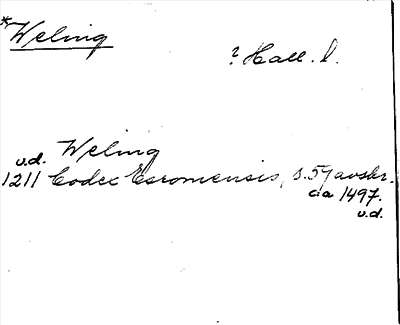 *Weling
? Hall. l.
u.d. Weling
1211 Codex Esromensis, s. 59 avskr.
cia 1497.
u.d.